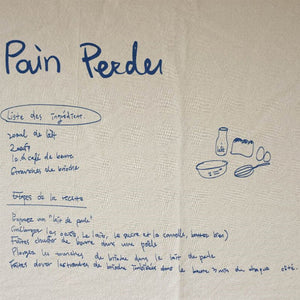 Pain Perdu
Liste des ingrédients.
200ml de lait
2 œufs
1 c. à café de beurre
6 tranches de brioche
Étapes de la recette
Préparez un "lait de poule"
(mélangez les œufs, le lait, le sucre et la cannelle, battez bien)
Faites chauffer du beurre dans une poêle
Plongez les tranches de brioche dans le lait de poule
Faites dorer les tranches de brioche dans le beurre de chaque côté.